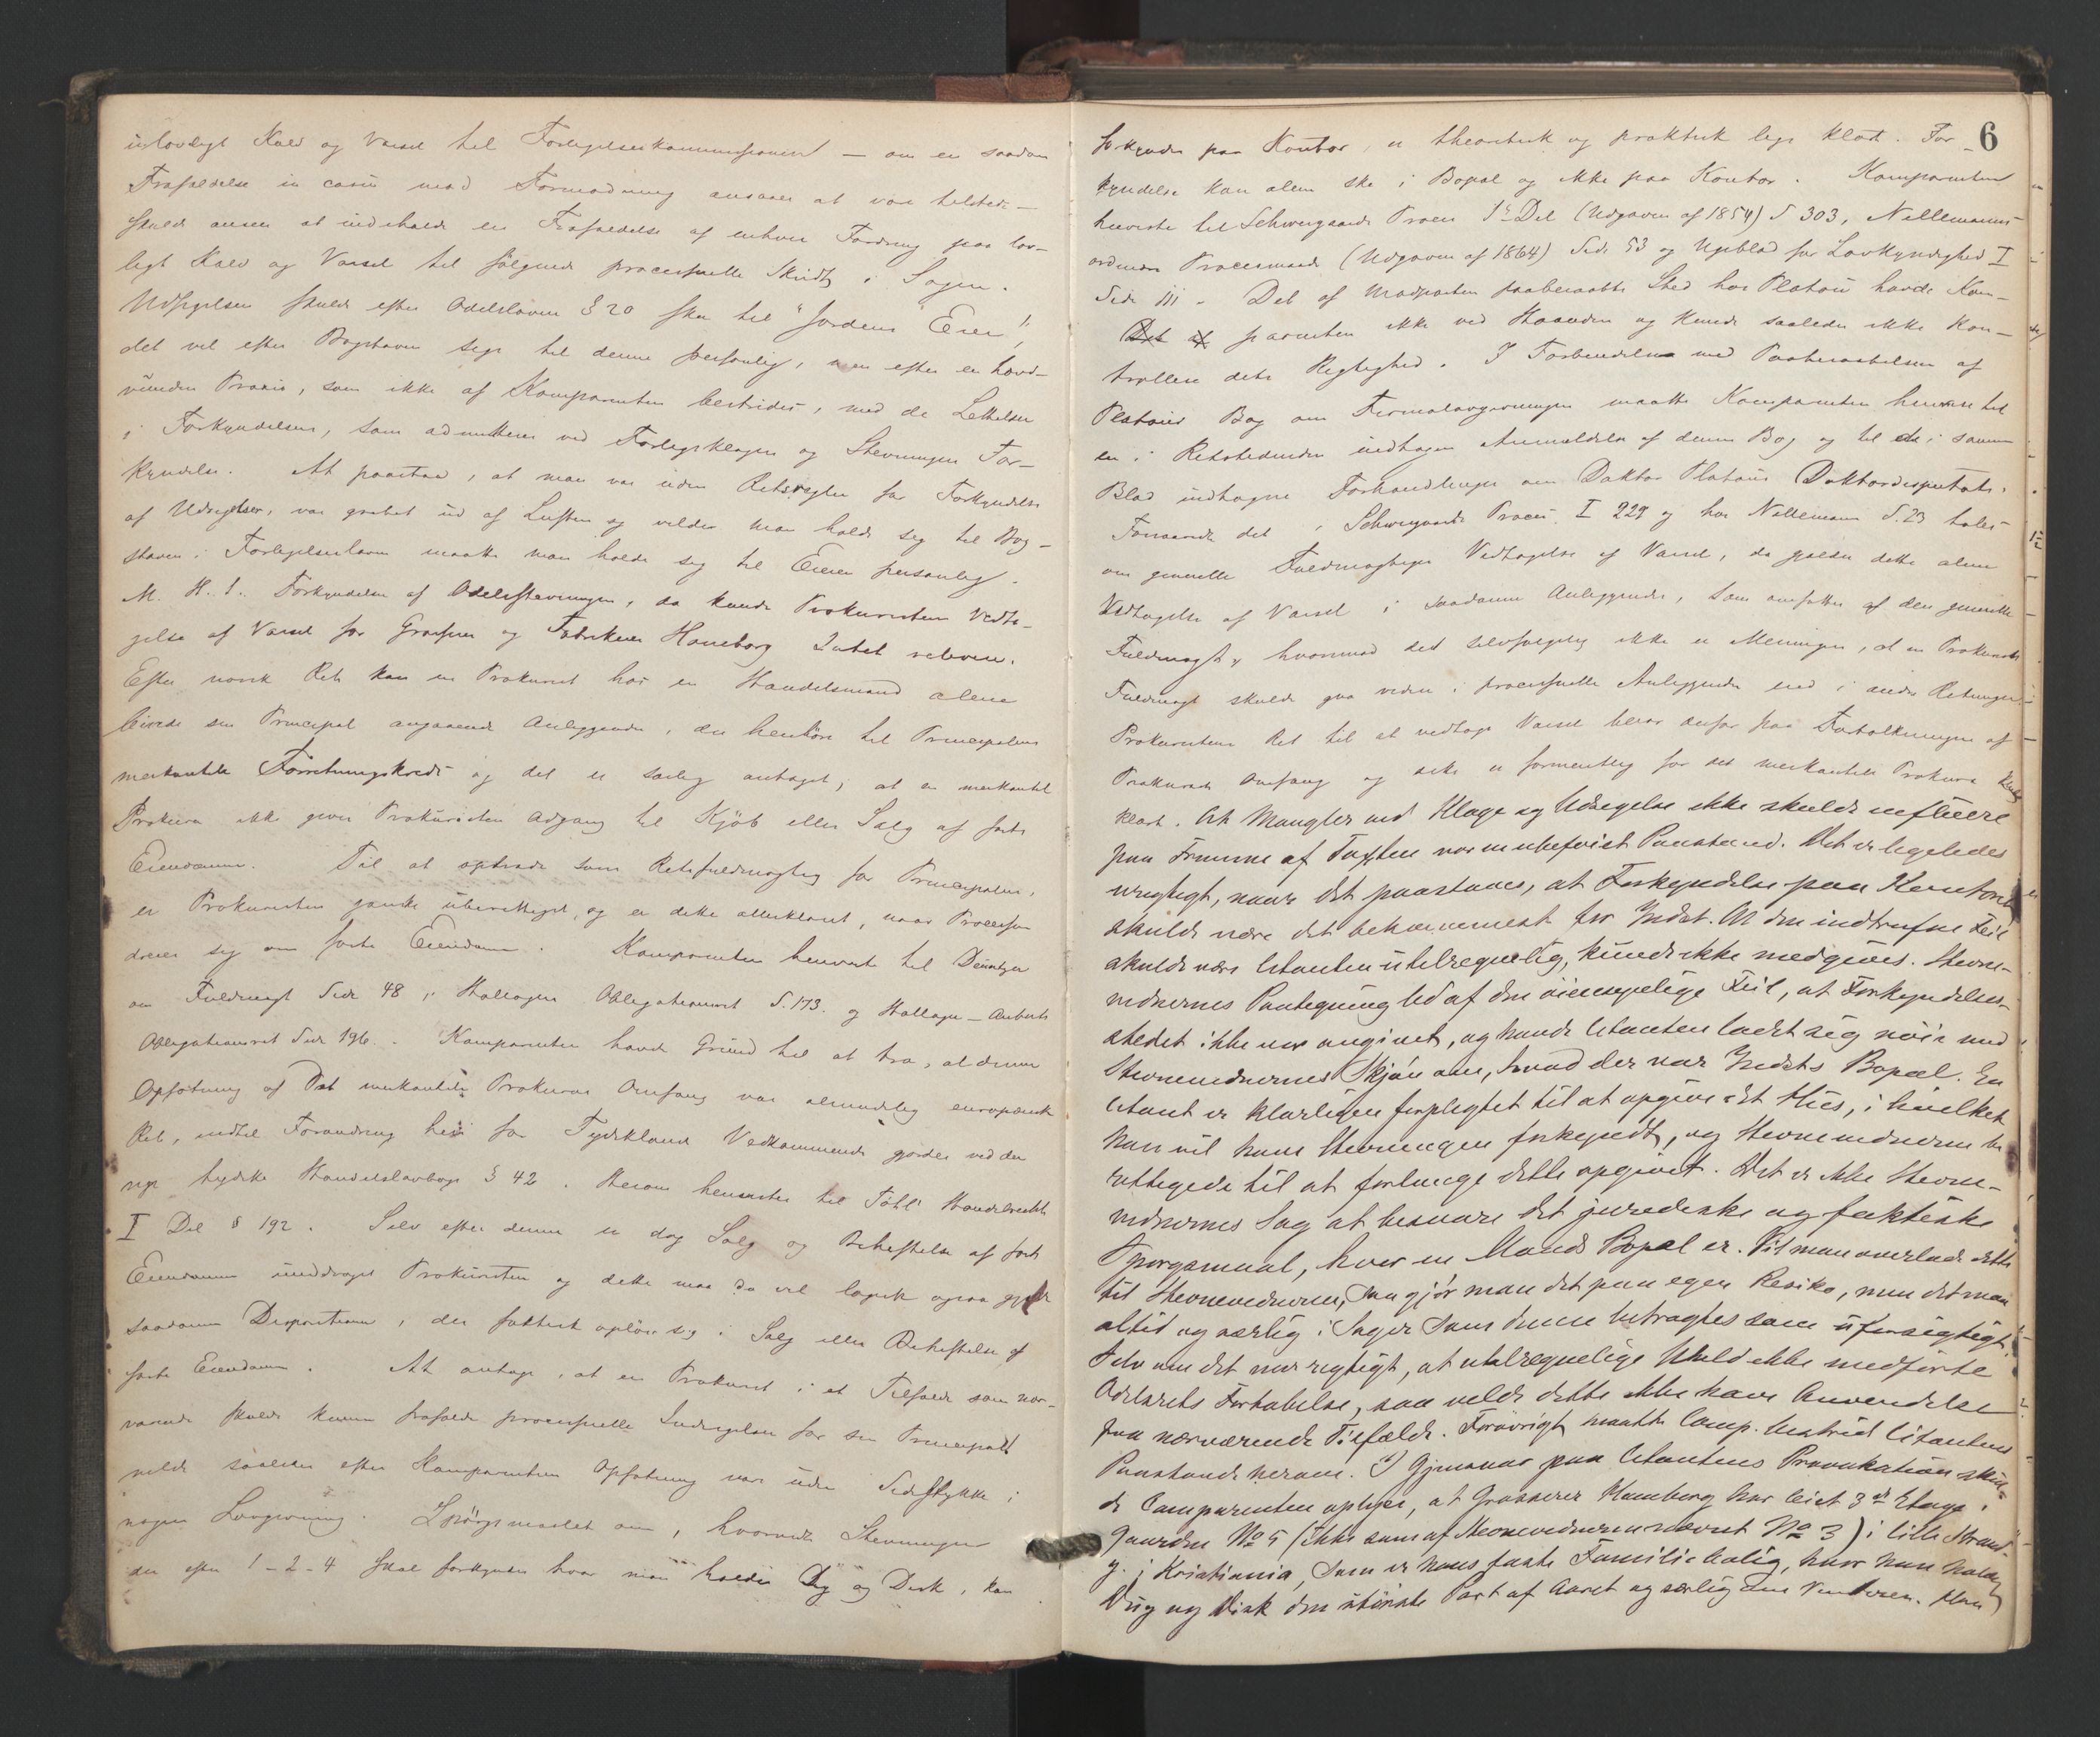 ulovligt Kald og Varsel til Forligelseskommissionen — om en saadan
Frafaldelse in casu mod Formodning ansaaes at være tilstede —
skulde ansees at indeholde en Frafaldelse af enhver Fordring paa lov-
ligt Kald og Varsel til følgende processuelle Skridt i Sagen.
Udsigelsen skulde efter Odelsloven § 20 ske til "Jordens Eier",
det vil efter Bogstaven sige til denne personlig, men efter en hævd-
vunden Praxis, som ikke af Komparenten bestrides, med de Lettelser
i Forkyndelsen, som admitteres ved Forligsklagers og Stevningers For-
kyndelse. At paastaa, at man var uden Retsregler for Forkyndelse
af Udsigelser, var grebet ud af Luften og vilde man holde sig til Bog-
staven i Forligelsesloven maatte man holde sig til Eieren personlig.
M. H. t. Forkyndelsen af Odelsstevningen, da kunde Prokuristens Vedta-
gelse af Varsel for Grosserer og Fabrikeier Homeborg Intet relevere.
Efter norsk Ret kan en Prokurist hos en Handelsmand alene
binde sin Principal angaaende Anliggender, der henhører til Principalens
merkantile Forretningskreds og det er særlig antaget, at en merkantil
Prokura ikke giver Prokuristen Adgang til Kjøb eller Salg af faste
Eiendomme. Til at optræde som Retsfuldmægtig for Principalen,
er Prokuristen ganske uberettiget, og er dette allerklarest, naar Processen
dreier sig om faste Eiendomme. Komparenten henviste til Deuntzer
om Fuldmagt Side 48, Hallagers Obligationsret S. 173. og Hallager — Auberts
Obligationsret Side 196. Komparenten havde Grund til at tro, at denne
Opfatning af Det merkantile Prokuras Omfang var almindelig europæisk
Ret, indtil Forandring heri for Tydsklands Vedkommende gjordes ved den
nye tydske Handelslovbogs § 42. Herom henvistes til Töhls Handelsrecht
I Del § 192. Selv efter denne er dog Salg og Behæftelse af faste
Eiendomme unddraget Prokuristen og dette maa da vel logisk ogsaa gjælde
saadanne Dispositioner, der faktisk opløse sig i Salg eller Behæftelse af
faste Eiendomme. At antage, at en Prokurist i et Tilfælde som nær-
værende skulde kunne frafalde processuelle Indsigelser for sin Principal
vilde saaledes efter Komparentens Opfatning være uden Sidestykke i
nogen Lovgivning. Spørgsmaalet om, hvorvidt Stevninger
der efter 1 – 2 – 4 skal forkyndes hvor man holder Dug og Disk, kan
6
forkyndes paa Kontor, er theoretisk og praktisk lige klart. For-
kyndelse kan alene ske i Bopæl og ikke paa Kontor. Komparenten
henviste til Schweigaards Proces 1ste Del (Udgaven af 1854) S 303, Nellemanns
ordinære Procesmaade (Udgaven af 1864) Side 53 og Ugeblad for Lovkyndighed I
Side 111. Det af Modparten paaberaabte Sted hos Platou havde Kom-
parenten ikke ved Haanden og kunde saaledes ikke kon-
trollere dets Rigtighed. I Forbindelse med Paaberaabelsen af
Platous Bog om Firmalovgivningen maatte Komparenten henvise til
en i Retstidenden indtagen Anmeldelse af denne Bog og til de i samme
Blad indtagne Forhandlinger om Doktor Platous Doktordisputats.
Forsaavidt det i Schweigaards Proces I 229 og hos Nellemann S. 23 tales
om generelle Fuldmægtiges Vedtagelse af Varsel, da gjælder dette alene
Vedtagelse af Varsel i saadanne Anliggender, som omfattes af den generelle
Fuldmagt, hvormed det selvfølgelig ikke er Meningen, at en Prokurists
Fuldmagt skulde gaa videre i processuelle Anliggender end i andre Retninger.
Prokuristens Ret til at vedtage Varsel beror derfor paa Fortolkningen af
Prokuraens Omfang og dette er formentlig for det merkantile Prokura
klart. At Mangler ved Klage og Udsigelse ikke skulde influere
paa Fremme af Taxten var en ubeføiet Paastand. Det er ligeledes
urigtigt, naar det paastaaes, at Forkyndelse paa Kontoret
skulde være det bekvemmest for Indst. At den indtrufne Feil
skulde være Citanten utilregnelig, kunde ikke medgives. Stevne-
vidnernes Paategning led af den øiensynlige Feil, at Forkyndelses-
stedet ikke var angivet, og havde Citanten ladet sig nøie med
Stevnevidnernes Skjøn om, hvad der var Indsts Bopæl. En
Citant er klarligen forpligtet til at opgive det Hus, i hvilket
han vil have Stevningen forkyndt, og Stevnevidnerne be-
rettigede til at forlange dette opgivet. Det er ikke Stevne-
vidnernes Sag at besvare det juridiske og faktiske
Spørgsmaal, hvor en Mands Bopæl er. Vil man overlade dette
til Stevnevidnerne, saa gjør man det paa egen Risiko, men det maa
altid og særlig i Sager som denne betragtes som uforsigtigt.
Selv om det var rigtigt, at utilregnelige Uheld ikke medførte
Odelsrets Fortabelse, saa vilde dette ikke have Anvendelse
paa nærværende Tilfælde. Forøvrigt maatte Comp. bestride Citantens
Paastande herom. I Gjensvar paa Citantens Provokation skul-
de Comparenten oplyse, at Grosserer Homeborg har leiet 3die Etage i
Gaarden No 5 (ikke som af Stevnevidnerne nævnt No 3) i lille Strand-
g. i Kristiania, som er hans faste Familiebolig, hvor han holder
Dug og Disk den største Part af Aaret og særlig om Vinteren. Han